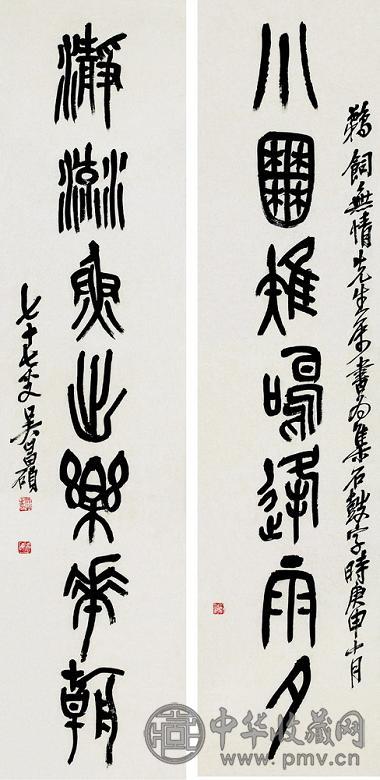 鵜飼無情先生屬書為集石鼓字時庚申十月
小囿雉鳴逢雨夕
瀞流魚出樂華朝
七十七叟吳昌碩
中华收藏网
www.pmv.cn